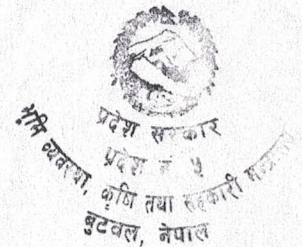 प्रदेश सरकार
प्रदेश नं ५
भूमि व्यवस्था, कृषि तथा सहकारी मन्त्रालय
बुटवल, नेपाल